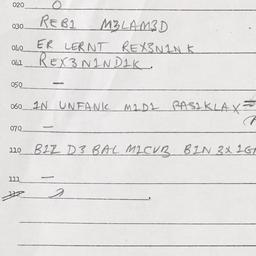 020 O
030 REB1 M3LAM3D
040 ER LERNT REX3N1NK
041 REX3N1ND1K.
050 —
060 1N UNFANK M1D1 BAS1KLAX=
070 —
110 B1Z D3 BAL M1CUB B1N 3X 1G
111 —